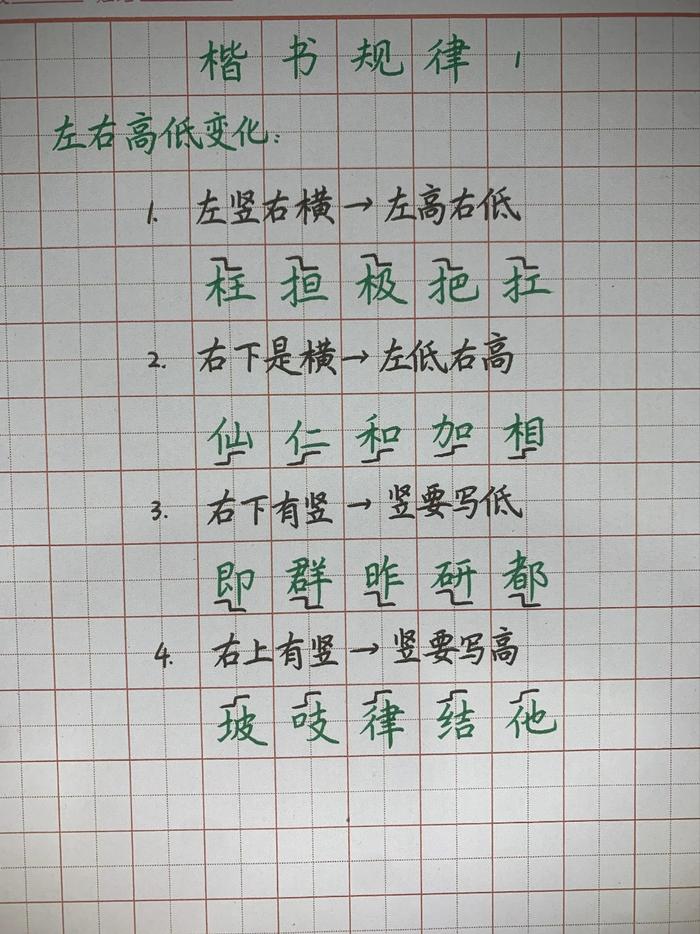 楷书规律 1
左右高低变化:
1. 左竖右横→左高右低
枉 担 极 把 扛
2. 右下是横→左低右高
仙 仁 和 加 相
3. 右下有竖→竖要写低
即 群 昨 研 都
4. 右上有竖→竖要写高
坡 吱 律 结 他